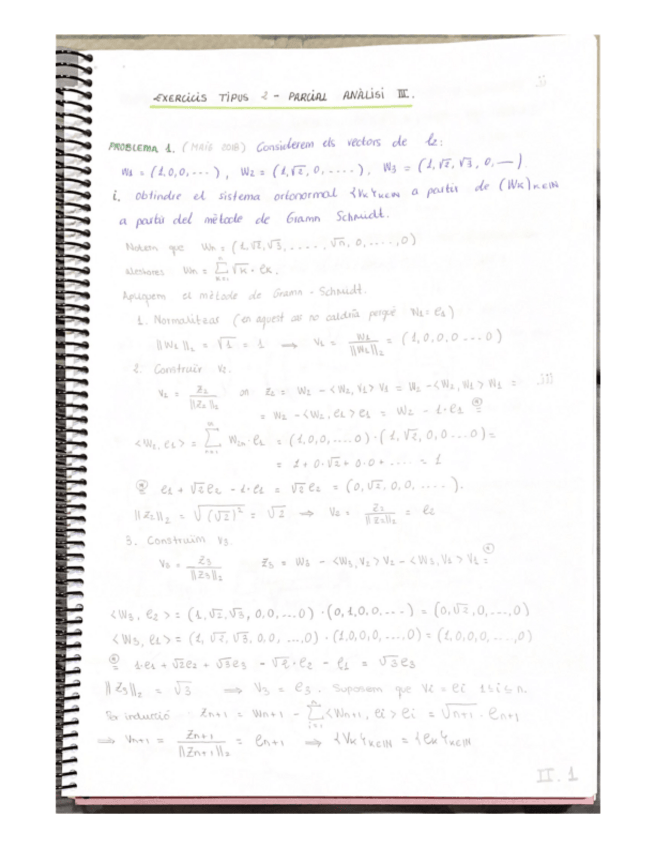 EXERCICIS TIPUS 2 - PARCIAL ANÀLISI III.
PROBLEMA 1. (MAIG 2018) Considerem els vectors de ℓ₂:
W₁ = (1,0,0,...), W₂ = (1,√2,0,....), W₃ = (1,√2,√3,0,—)
i. obtindre el sistema ortonormal {Vₖ}ₖ∈ℕ a partir de (Wₖ)ₖ∈ℕ
a partir del mètode de Gramm Schmidt.
Notem que Wₙ = (1,√2,√3,.....,√n,0,....,0)
aleshores Wₙ = Σₖ₌₁ⁿ √k · eₖ.
Apliquem el mètode de Gramm-Schmidt.
1. Normalitzar (en aquest cas no caldria perquè W₁ = e₁)
||W₁||₂ = √1 = 1 ⟹ V₁ = W₁/||W₁||₂ = (1,0,0,0...0)
2. Construir V₂.
V₂ = Z₂/||Z₂||₂ on Z₂ = W₂ - <W₂,V₁> V₁ = W₂ - <W₂,W₁> W₁ =
= W₂ - <W₂,e₁> e₁ = W₂ - 1·e₁ =
= (1,0,0,....0)·(1,√2,0,0...0) =
= 1 + 0·√2 + 0·0 + .... = 1
e₁ + √2e₂ - 1·e₁ = √2e₂ = (0,√2,0,0,....).
||Z₂||₂ = √(√2)² = √2 ⟹ V₂ = Z₂/||Z₂||₂ = e₂
3. Construim V₃.
V₃ = Z₃/||Z₃||₂ Z₃ = W₃ - <W₃,V₂> V₂ - <W₃,V₁> V₁ =
<W₃,e₂> = (1,√2,√3,0,0,...0)·(0,1,0,0,...) = (0,√2,0,...,0)
<W₃,e₁> = (1,√2,√3,0,0,...,0)·(1,0,0,0,...,0) = (1,0,0,0,...,0)
1·e₁ + √2e₂ + √3e₃ - √2·e₂ - e₁ = √3e₃
||Z₃||₂ = √3 ⟹ V₃ = e₃. Suposem que Vᵢ = eᵢ 1≤i≤n.
Per inducció Zₙ₊₁ = Wₙ₊₁ - Σᵢ₌₁ⁿ <Wₙ₊₁, eᵢ> eᵢ = √n+1 · eₙ₊₁
⟹ Vₙ₊₁ = Zₙ₊₁/||Zₙ₊₁||₂ = eₙ₊₁ ⟹ {Vₖ}ₖ∈ℕ = {eₖ}ₖ∈ℕ
II.1